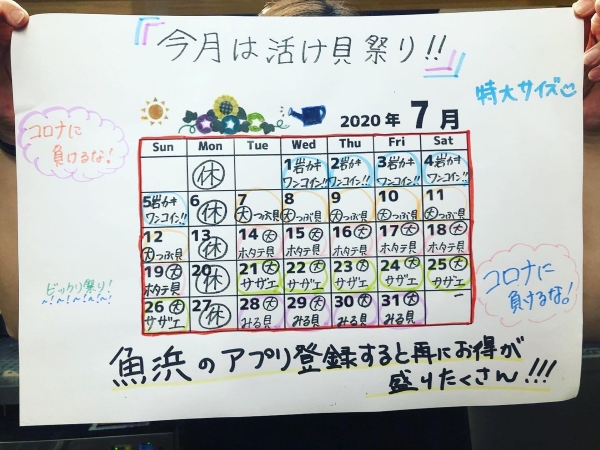 今月は活け貝祭り!!
特大サイズ
コロナに
負けるな!
2020年 7月
Sun Mon Tue Wed Thu Fri Sat
休 1岩カキ 2岩カキ 3岩カキ 4岩カキ
ワンコイン!! ワンコイン!! ワンコイン!! ワンコイン!!
5岩カキ 6 休 7 8 9 10 11
ワンコイン!! 大つぶ貝 大つぶ貝 大つぶ貝 大つぶ貝 大つぶ貝
12 13 休 14大 15大 16大 17大 18大
大つぶ貝 ホタテ貝 ホタテ貝 ホタテ貝 ホタテ貝 ホタテ貝
19大 20 休 21大 22大 23大 24大 25大
ホタテ貝 サザエ サザエ サザエ サザエ サザエ
26大 27 休 28大 29大 30大 31大
サザエ みる貝 みる貝 みる貝 みる貝
ビックリ祭り!
コロナに
負けるな!
魚浜のアプリ登録すると再にお得が
盛りたくさん!!!